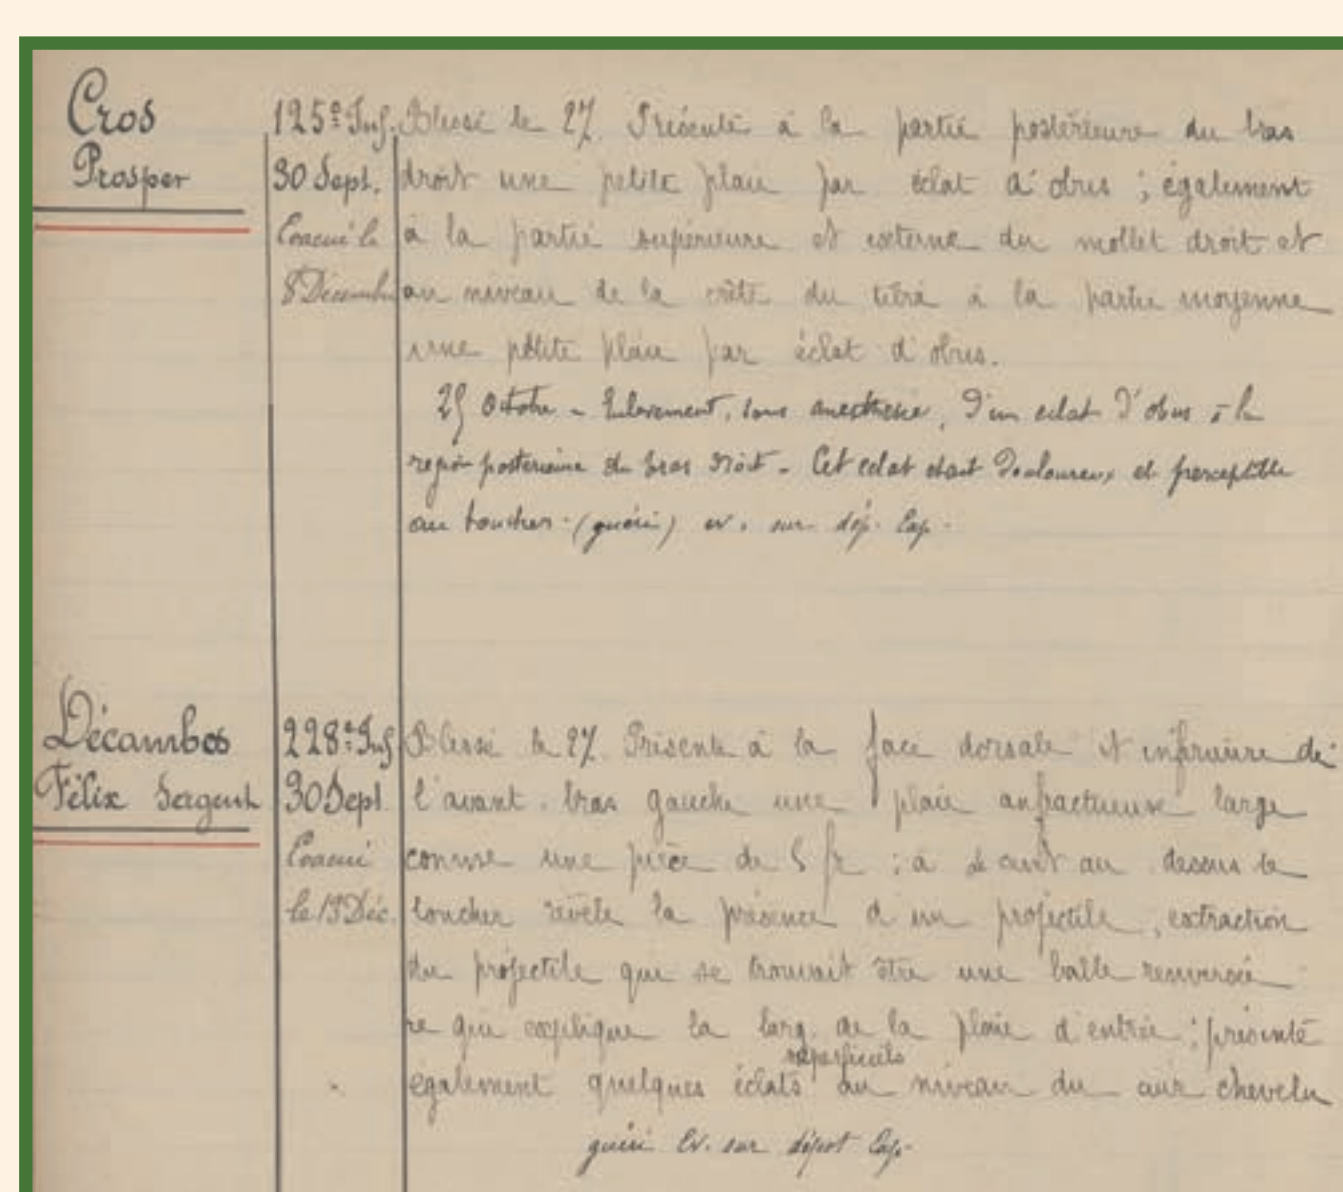 Cros
Prosper
125e Inf.
30 Sept.
Evacué le
8 Décembre
Blessé le 27. Présente à la partie postérieure du bras
droit une petite plaie par éclat d'obus ; également
à la partie supérieure et externe du mollet droit et
au niveau de la crête du tibia à la partie moyenne
une petite plaie par éclat d'obus.
25 Octobre - Enlèvement, sous anesthésie, d'un eclat d'obus à la
région posterieure du bras droit - Cet eclat etait douloureux et perceptible
au toucher - (guéri) ev. sur dép. Cap.
Décambos
Félix Sergent
228e Inf
30 Sept
Evacué
le 13 Déc.
Blessé le 27. Présente à la face dorsale et inférieure de
l'avant-bras gauche une plaie anfractueuse large
comme une pièce de 5 fr ; à au dessus le
toucher révèle la présence d'un projectile, extraction
du projectile qui se trouvait être une balle renversée
ce qui explique la larg. de la plaie d'entrée ; présente
également quelques éclats superficiels au niveau du cuir chevelu
guéri Ev. sur dépot Cap.